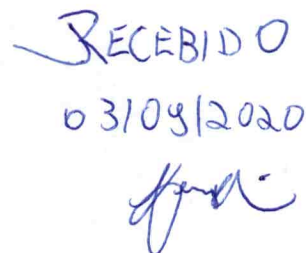 RECEBIDO
03/09/2020